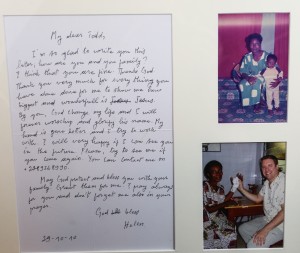 My dear Todd,
I'm so glad to write you this
letter, how are you and you family?
I think that you are fine. Thanks God
Thank you very much for everything you
have done for me to show me how
biggest and wonderfull is Jesus.
By you, God change my life and I will
forever worship and glorify his name. My
hand is quite better and I try to work
with. I will very happy if I can see you
in the future. Please, try to see me if
you come again. You can contact me on
May God protect and bless you with your
family. Greet them for me. I pray always
for you and don't forget me also in your
prayer.
God bless
29-10-10